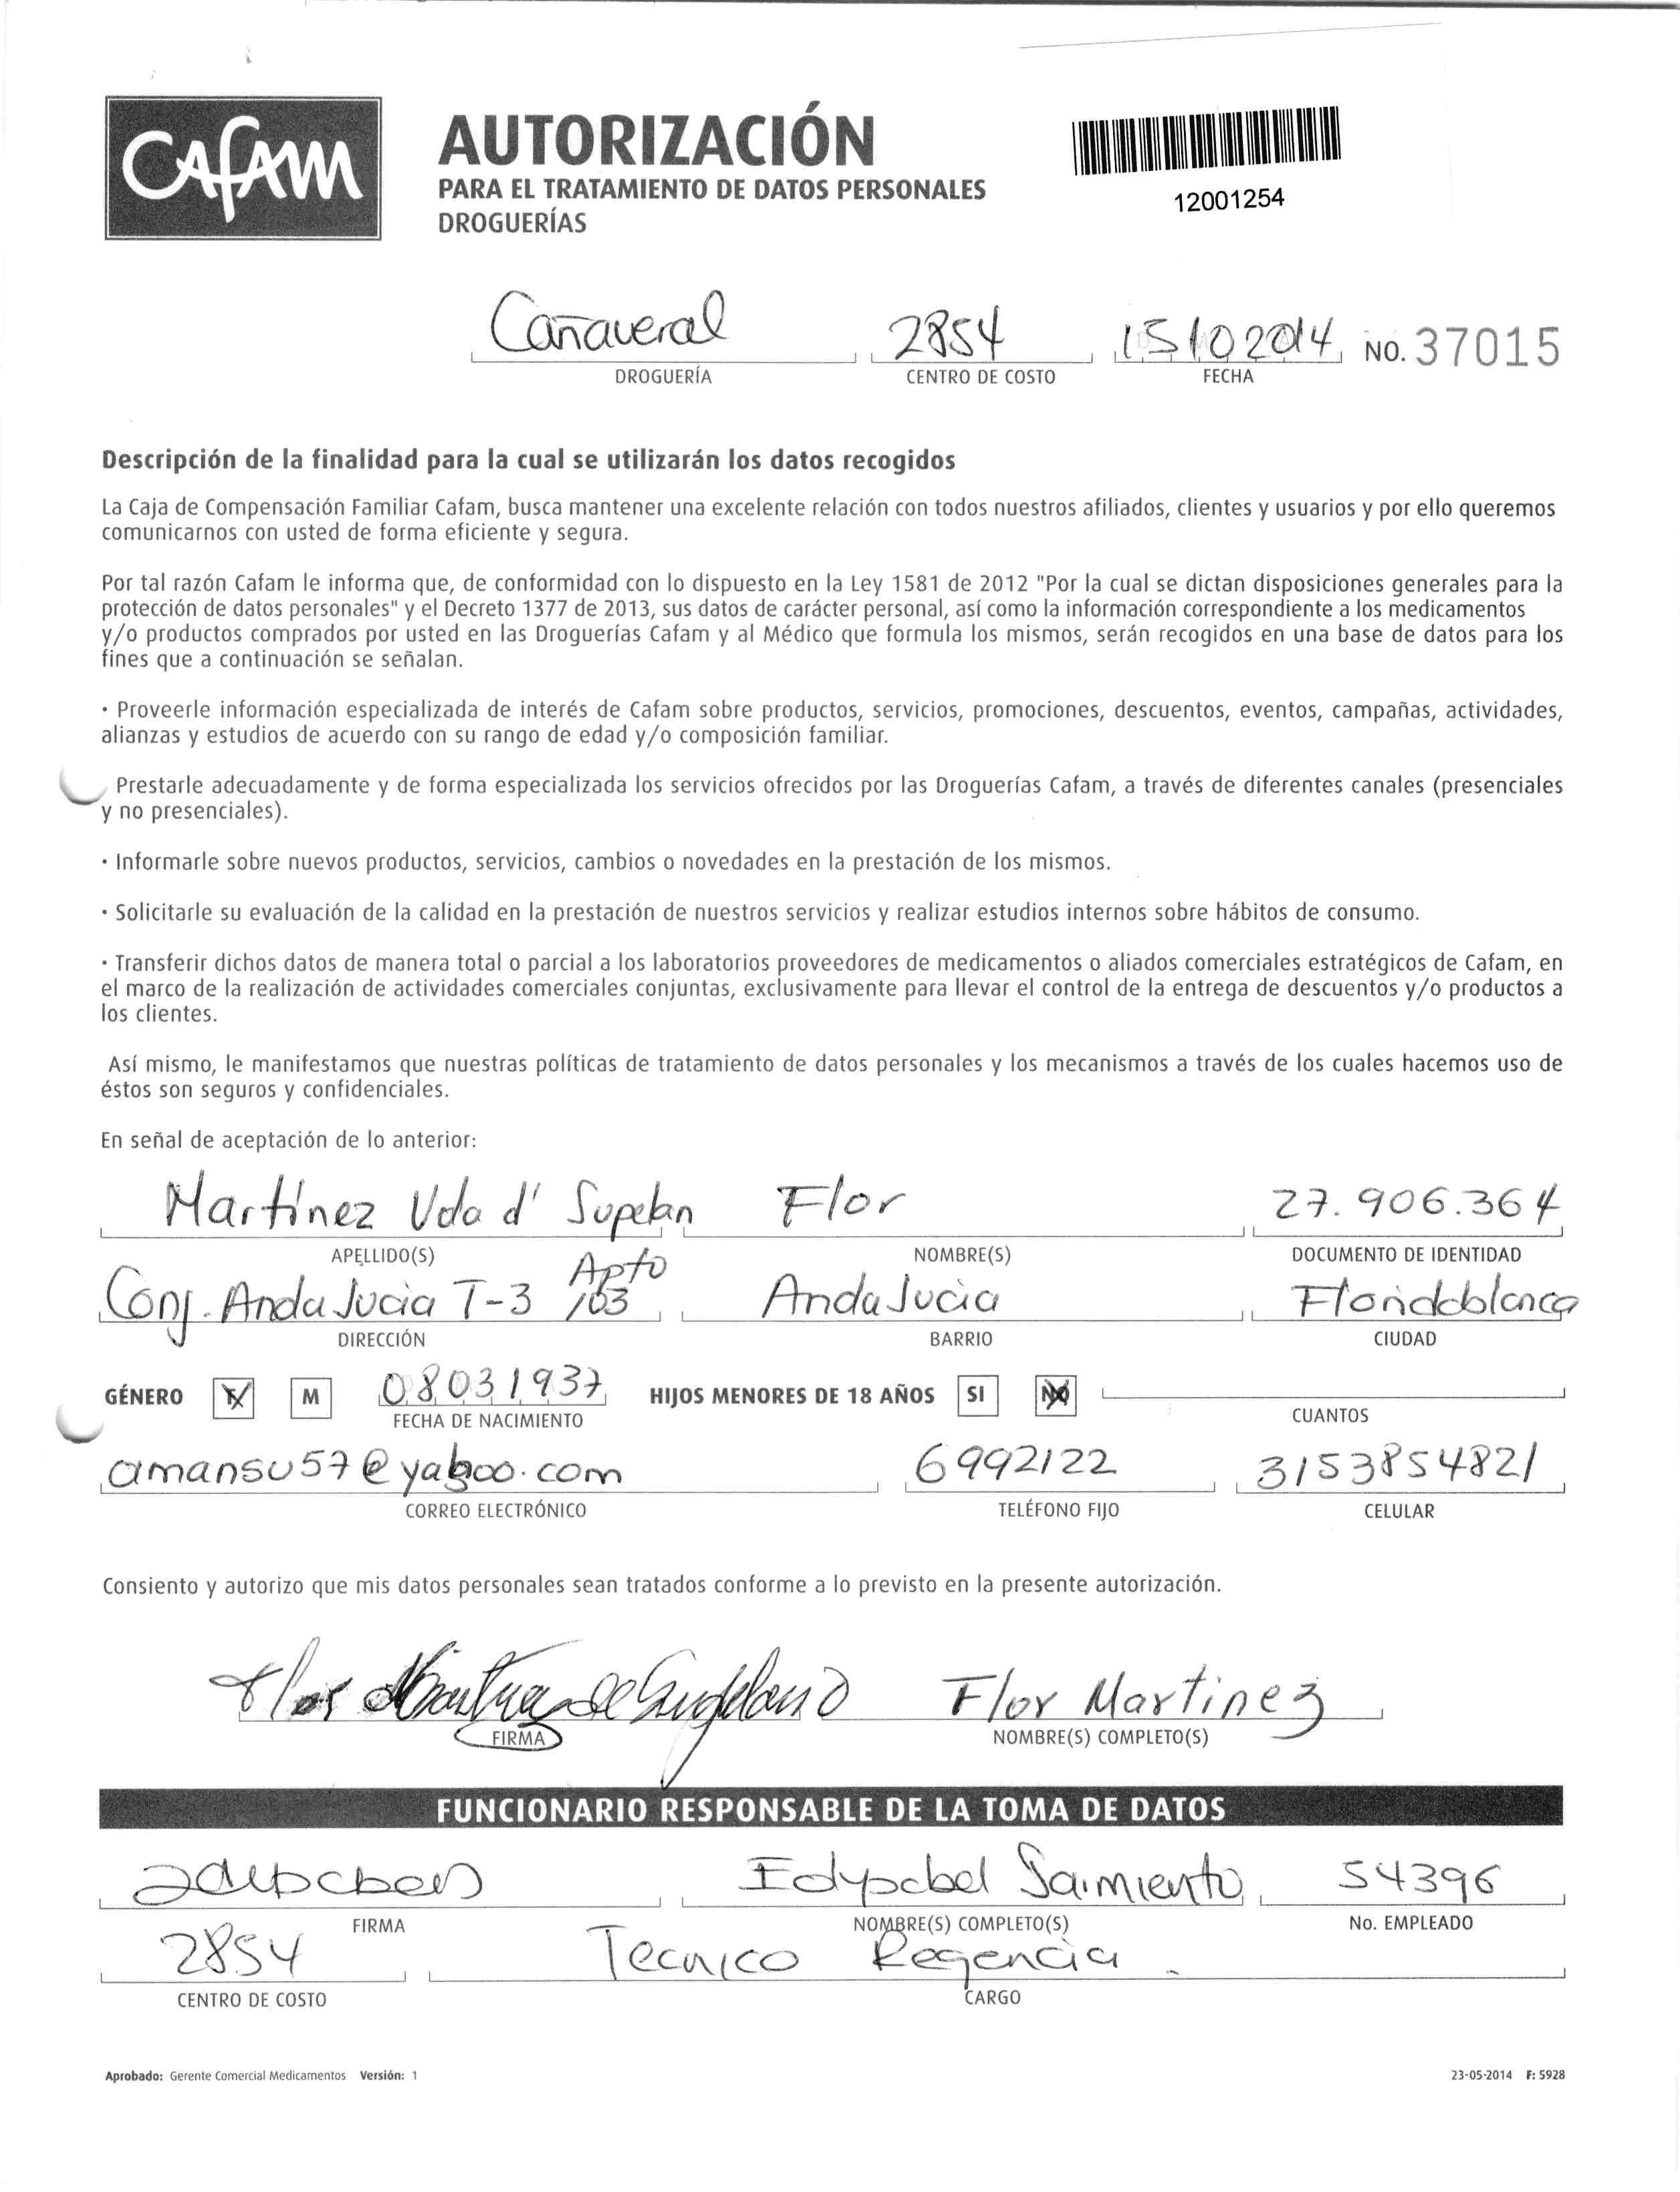 CAFAM
AUTORIZACIÓN
PARA EL TRATAMIENTO DE DATOS PERSONALES
DROGUERÍAS
12001254
Cañaveral 2854 15102014 NO. 37015
DROGUERÍA CENTRO DE COSTO FECHA
Descripción de la finalidad para la cual se utilizarán los datos recogidos
La Caja de Compensación Familiar Cafam, busca mantener una excelente relación con todos nuestros afiliados, clientes y usuarios y por ello queremos
comunicarnos con usted de forma eficiente y segura.
Por tal razón Cafam le informa que, de conformidad con lo dispuesto en la Ley 1581 de 2012 "Por la cual se dictan disposiciones generales para la
protección de datos personales" y el Decreto 1377 de 2013, sus datos de carácter personal, así como la información correspondiente a los medicamentos
y/o productos comprados por usted en las Droguerías Cafam y al Médico que formula los mismos, serán recogidos en una base de datos para los
fines que a continuación se señalan.
· Proveerle información especializada de interés de Cafam sobre productos, servicios, promociones, descuentos, eventos, campañas, actividades,
alianzas y estudios de acuerdo con su rango de edad y/o composición familiar.
Prestarle adecuadamente y de forma especializada los servicios ofrecidos por las Droguerías Cafam, a través de diferentes canales (presenciales
y no presenciales).
· Informarle sobre nuevos productos, servicios, cambios o novedades en la prestación de los mismos.
· Solicitarle su evaluación de la calidad en la prestación de nuestros servicios y realizar estudios internos sobre hábitos de consumo.
· Transferir dichos datos de manera total o parcial a los laboratorios proveedores de medicamentos o aliados comerciales estratégicos de Cafam, en
el marco de la realización de actividades comerciales conjuntas, exclusivamente para llevar el control de la entrega de descuentos y/o productos a
los clientes.
Así mismo, le manifestamos que nuestras políticas de tratamiento de datos personales y los mecanismos a través de los cuales hacemos uso de
éstos son seguros y confidenciales.
En señal de aceptación de lo anterior:
Martinez Vda d' Flor 27.906.364
APELLIDO(S) NOMBRE(S) DOCUMENTO DE IDENTIDAD
Conj. Andalucia T-3 Apto 103 Andalucia Floridablanca
DIRECCIÓN BARRIO CIUDAD
GÉNERO F M 08031937 HIJOS MENORES DE 18 AÑOS SI NO
FECHA DE NACIMIENTO CUANTOS
amansu57@yahoo.com 6992122 3153854821
CORREO ELECTRÓNICO TELÉFONO FIJO CELULAR
Consiento y autorizo que mis datos personales sean tratados conforme a lo previsto en la presente autorización.
Flor Martinez
FIRMA NOMBRE(S) COMPLETO(S)
FUNCIONARIO RESPONSABLE DE LA TOMA DE DATOS
Sarmiento 54396
FIRMA NOMBRE(S) COMPLETO(S) No. EMPLEADO
2854 Tecnico Regencia
CENTRO DE COSTO CARGO
Aprobado: Gerente Comercial Medicamentos Versión: 1 23-05-2014 F: 5928